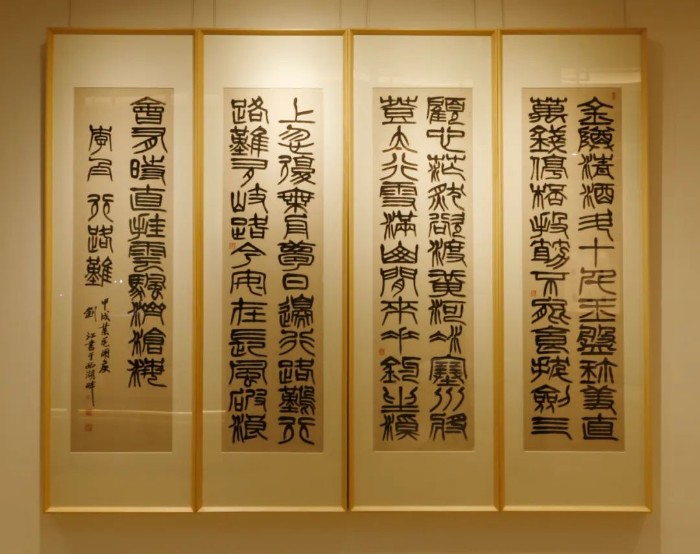 金樽清酒斗十千玉盤珍羞直
萬錢停杯投箸不能食拔劍四
顧心茫然欲渡黃河冰塞川將
登太行雪滿山閒來垂釣坐溪
上忽復乘舟夢日邊行路難行
路難多岐路今安在長風破浪
會有時直挂雲帆濟滄海
李白行路難
甲戌國慶
劉江書于西湖畔